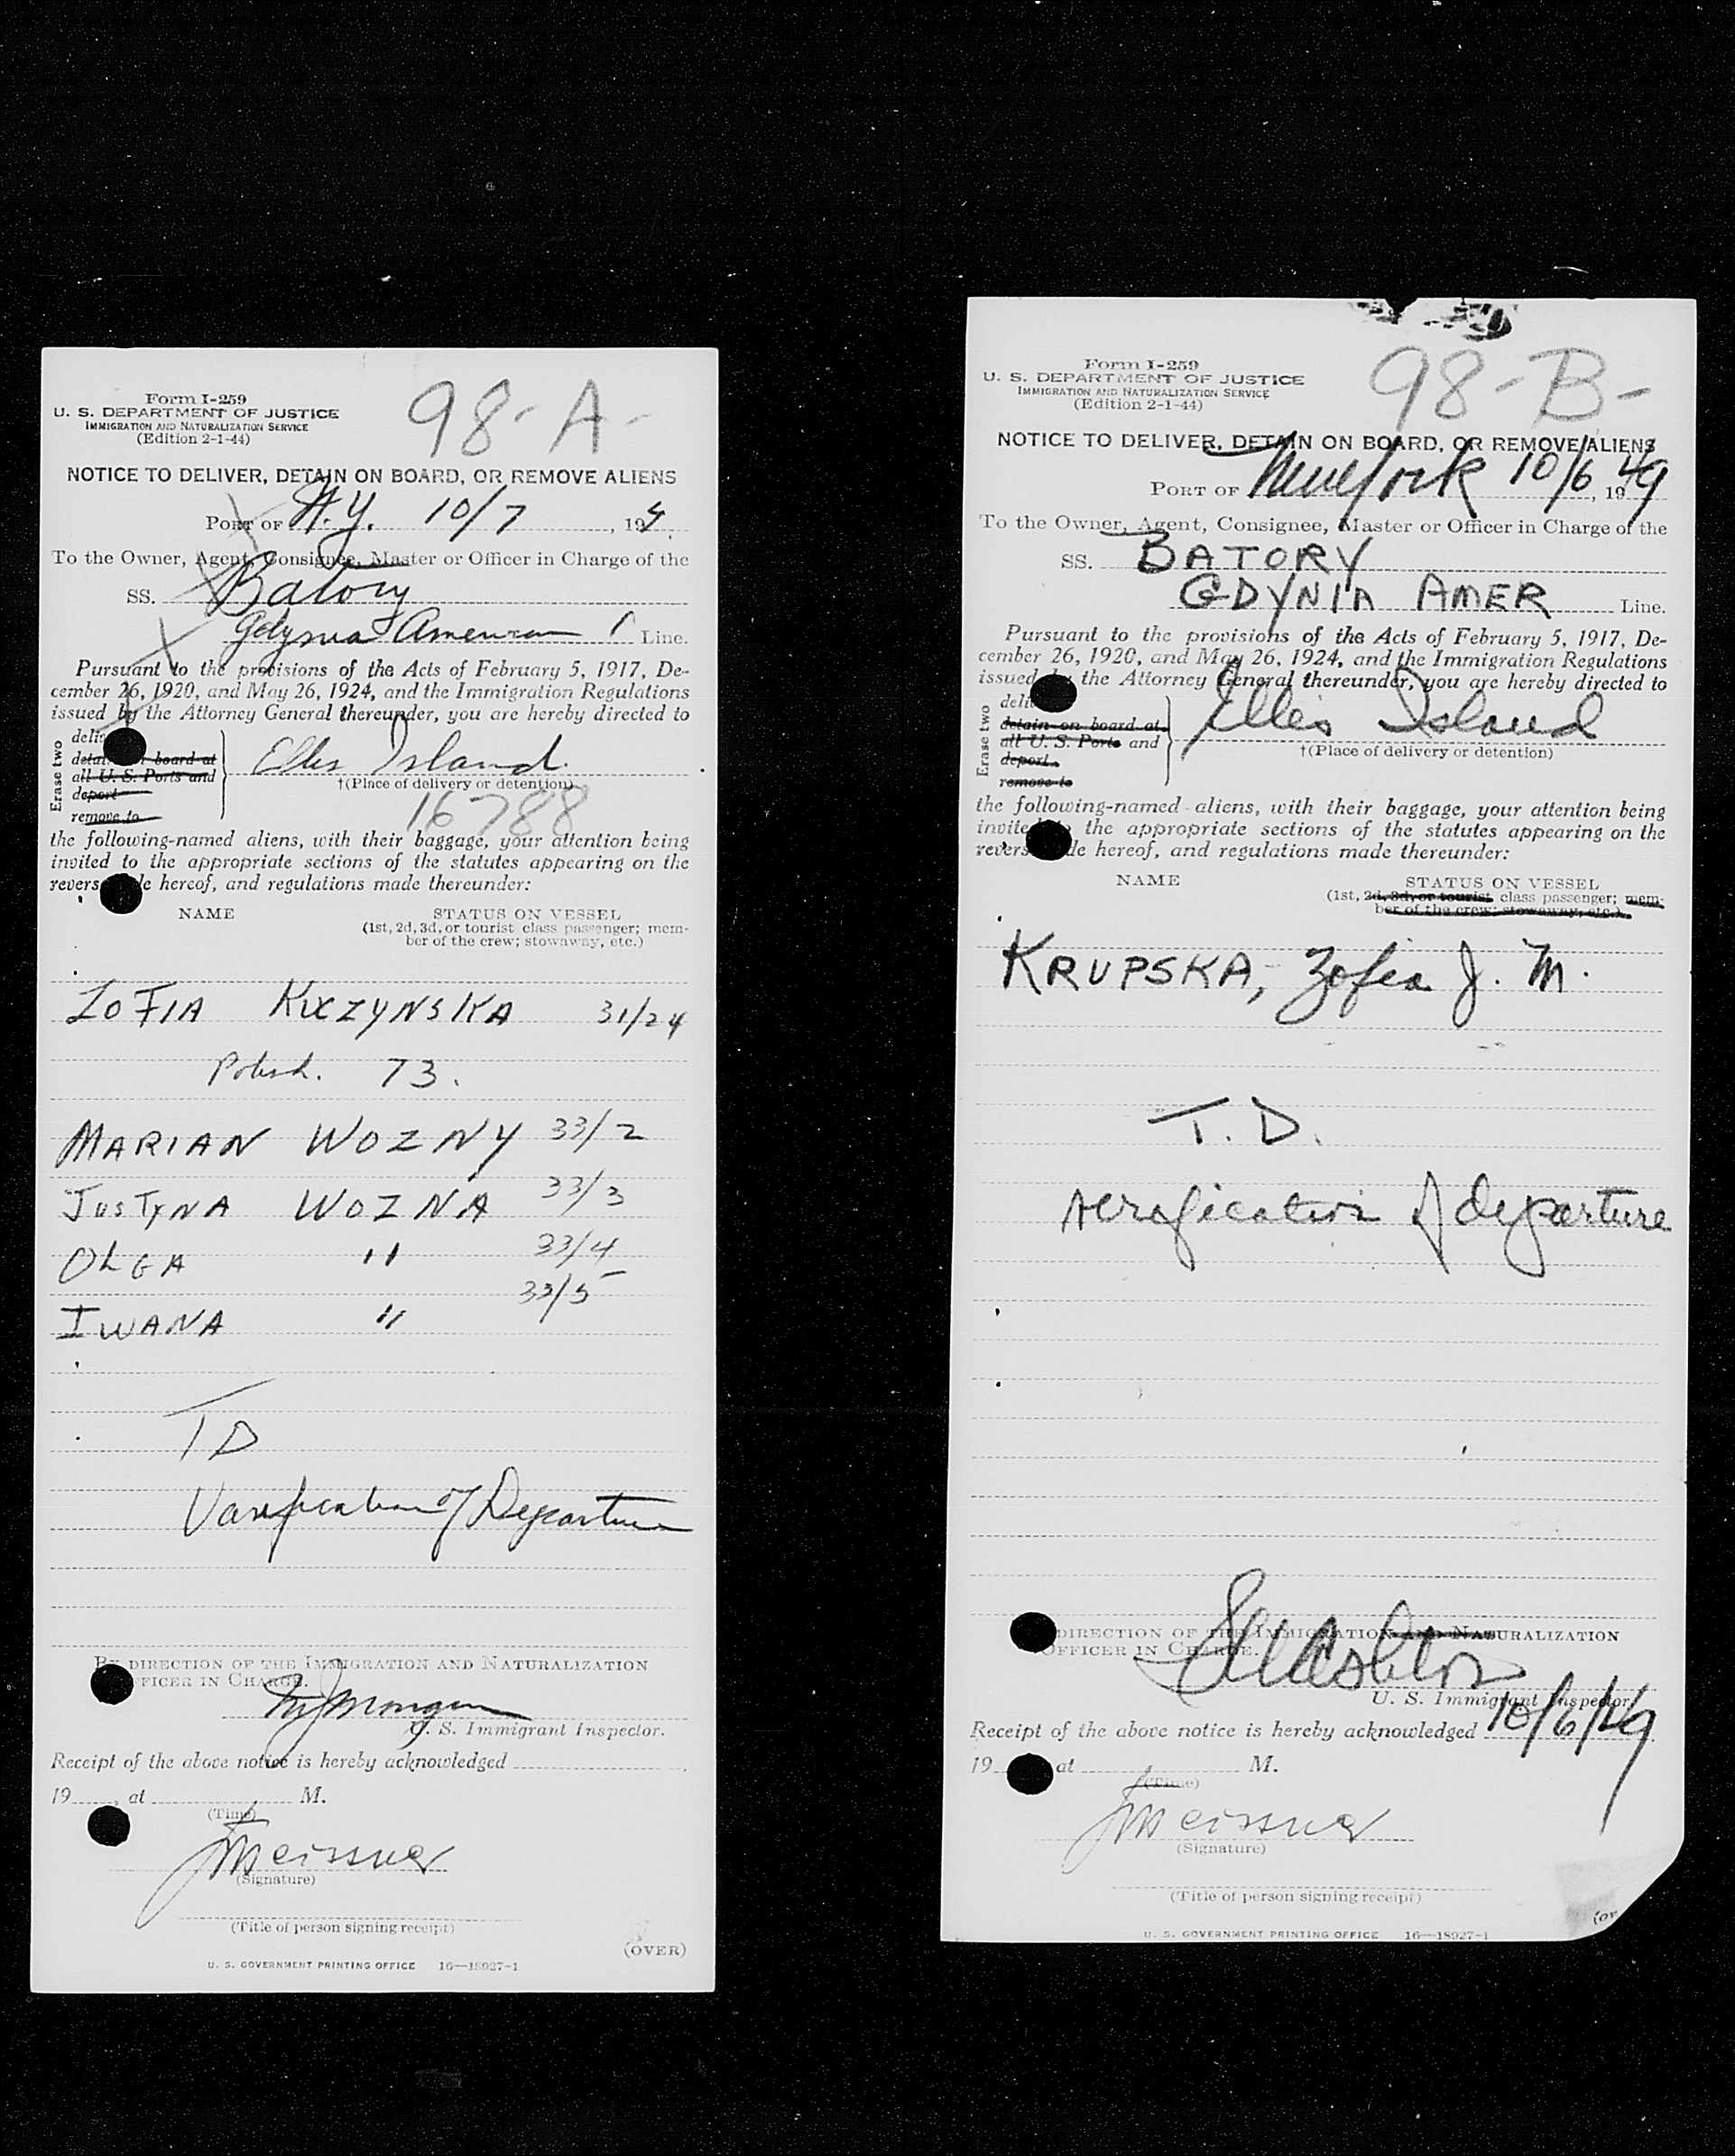 Form I-259
U. S. DEPARTMENT OF JUSTICE
IMMIGRATION AND NATURALIZATION SERVICE
(Edition 2-1-44)
98-A-
NOTICE TO DELIVER, DETAIN ON BOARD, OR REMOVE ALIENS
PORT OF N.Y. 10/7, 194
To the Owner, Agent, Consignee, Master or Officer in Charge of the
SS. Batory
Gdynia American Line.
Pursuant to the provisions of the Acts of February 5, 1917, De-
cember 26, 1920, and May 26, 1924, and the Immigration Regulations
issued by the Attorney General thereunder, you are hereby directed to
Erase two
detain on board at
all U. S. Ports and
deport
remove to
Ellis Island
†(Place of delivery or detention)
16788
the following-named aliens, with their baggage, your attention being
invited to the appropriate sections of the statutes appearing on the
hereof, and regulations made thereunder:
NAME STATUS ON VESSEL
(1st, 2d, 3d, or tourist class passenger; mem-
ber of the crew; stowaway, etc.)
ZOFIA 31/24
Polish. 73.
MARIAN WOZNY 33/2
JUSTYNA WOZNA 33/3
OLGA " 33/4
IWANA " 33/5
TD
Varification of Departure
BY DIRECTION OF THE IMMIGRATION AND NATURALIZATION
OFFICER IN CHARGE.
U. S. Immigrant Inspector.
Receipt of the above notice is hereby acknowledged
19 , at M.
(Time)
JMeissner
(Signature)
(Title of person signing receipt)
(OVER)
U. S. GOVERNMENT PRINTING OFFICE 16—18927-1
Form I-259
U. S. DEPARTMENT OF JUSTICE
IMMIGRATION AND NATURALIZATION SERVICE
(Edition 2-1-44)
98-B-
NOTICE TO DELIVER, DETAIN ON BOARD, OR REMOVE ALIENS
PORT OF New York 10/6, 1949
To the Owner, Agent, Consignee, Master or Officer in Charge of the
SS. BATORY
GDYNIA AMER Line.
Pursuant to the provisions of the Acts of February 5, 1917, De-
cember 26, 1920, and May 26, 1924, and the Immigration Regulations
issued by the Attorney General thereunder, you are hereby directed to
Erase two
detain on board at
all U. S. Ports and
deport
remove to
Ellis Island
†(Place of delivery or detention)
the following-named aliens, with their baggage, your attention being
invited to the appropriate sections of the statutes appearing on the
hereof, and regulations made thereunder:
NAME STATUS ON VESSEL
(1st, 2d, 3d, or tourist class passenger; mem-
ber of the crew; stowaway, etc.)
KRUPSKA, Zofia J. M.
T. D.
verification of departure
BY DIRECTION OF THE IMMIGRATION AND NATURALIZATION
OFFICER IN CHARGE.
U. S. Immigrant Inspector
Receipt of the above notice is hereby acknowledged 10/6/49
19 at M.
(Time)
JMeissner
(Signature)
(Title of person signing receipt)
U. S. GOVERNMENT PRINTING OFFICE 16—18927-1